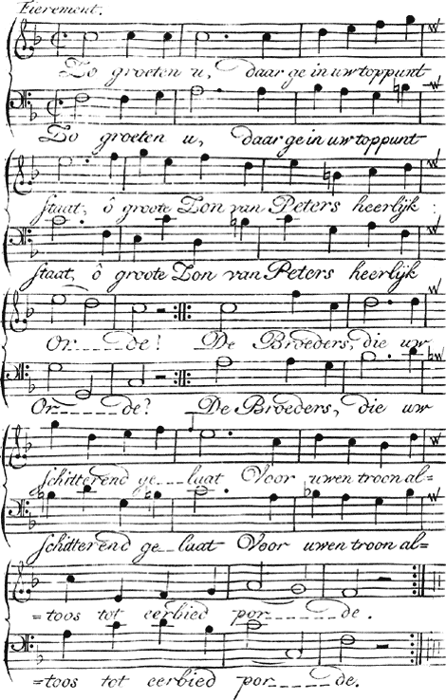 Fierement.
Zo groeten u, daar ge in uw toppunt
Zo groeten u, daar ge in uw toppunt
staat, ô groote Zon van Peters heerlijk
staat, ô groote Zon van Peters heerlijk
Or____de! De Broeders, die uw
Or____de! De Broeders, die uw
schitterend ge__laat Voor uwen troon al=
schitterend ge__laat Voor uwen troon al=
=toos tot eerbied por____de.
=toos tot eerbied por____de.